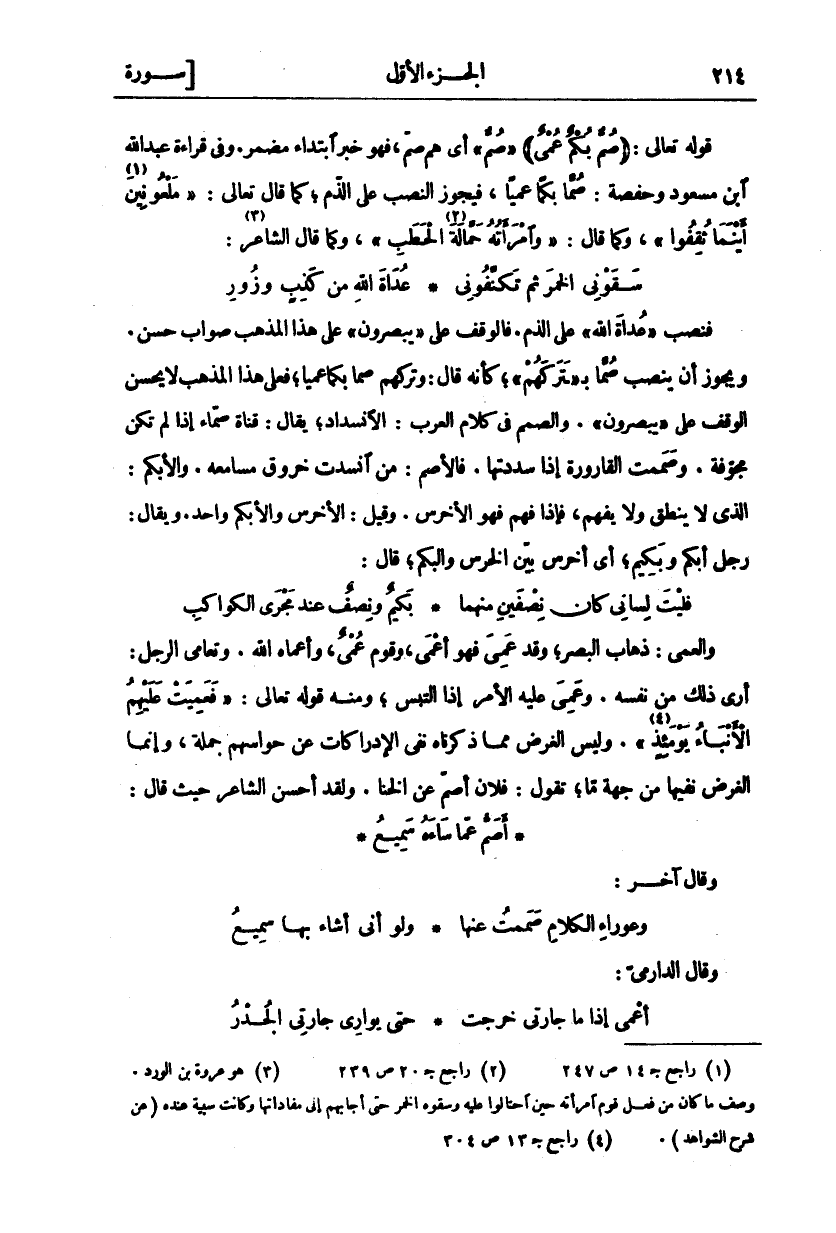 ٢١٤ الجـزء الأوّل [ســورة
قوله تعالى : (صُمٌّ بُكْمٌ عُمْىٌ) «صُمٌّ» أى هم صمّ ، فهو خبر ٱبتداء مضمر . وفى قراءة عبدالله
ٱبن مسعود وحفصة : صُمًّا بكمًا عميًا ، فيجوز النصب على الذّم ؛ كما قال تعالى : « مَلْعُونِينَ (١)
أَيْنَمَا ثُقِفُوا » ، وكما قال : « وَٱمْرَأَتُهُ حَمَّالَةَ الْحَطَبِ (٢) » ، وكما قال الشاعر (٣) :
سَـقَوْنِى الخمرَ ثم تَكنَّفُونِى * عُدَاةَ اللهِ من كَذِبٍ وزُورِ
فنصب «عُداةَ الله» على الذم . فالوقف على «يبصرون» على هذا المذهب صواب حسن .
ويجوز أن ينصب صُمًّا بـ«ـتَرَكَهُمْ» ؛ كأنه قال : وتركهم صما بكما عميا ؛ فعلى هذا المذهب لا يحسن
الوقف على «يبصرون» . والصمم فى كلام العرب : الٱنسداد ؛ يقال : قناة صمّاء إذا لم تكن
مجوّفة . وصَمَمت القارورة إذا سددتها . فالأصم : من ٱنسدت خروق مسامعه . والأبكم :
الذى لا ينطق ولا يفهم ، فإذا فهم فهو الأخرس . وقيل : الأخرس والأبكم واحد . ويقال :
رجل أبكم وبَكِيم ؛ أى أخرس بيّن الخرس والبكم ؛ قال :
فليْتَ لِسانِى كان نِصْفَينِ منهما * بَكيمٌ ونِصفٌ عند مَجْرَى الكواكبِ
والعمى : ذهاب البصر ؛ وقد عَمِىَ فهو أعْمَى ، وقوم عُمْىٌ ، وأعماه الله . وتعامى الرجل :
أرى ذلك من نفسه . وعَمِىَ عليه الأمر إذا التبس ؛ ومنـه قوله تعالى : « فَعَمِيَتْ عَلَيْهِمُ
الْأَنْبَـاءُ يَوْمَئِذٍ (٤) » . وليس الغرض ممـا ذكرناه نفى الإدراكات عن حواسهم جملة ، وإنمـا
الغرض نفيها من جهة مّا ؛ تقول : فلان أصمّ عن الخنا . ولقد أحسن الشاعر حيث قال :
* أَصَمُّ عمّا سَاءَهُ سَمِيـعُ *
وقال آخـر :
وعوراءِ الكلامِ صَمَمتُ عنها * ولو أنى أشاء بهـا سمِيـعُ
وقال الدارمىّ :
أعْمى إذا ما جارتى خرجت * حتى يوارِى جارتِى الجُـدْرُ
(١) راجع جـ ١٤ ص ٢٤٧ (٢) راجع جـ ٢٠ ص ٢٣٩ (٣) هو عروة بن الورد .
وصف ما كان من فعـل قوم ٱمرأته حين ٱحتالوا عليه وسقوه الخمر حتى أجابهم إلى مفاداتها وكانت سبية عنده (عن
شرح الشواهد) . (٤) راجع جـ ١٣ ص ٣٠٤